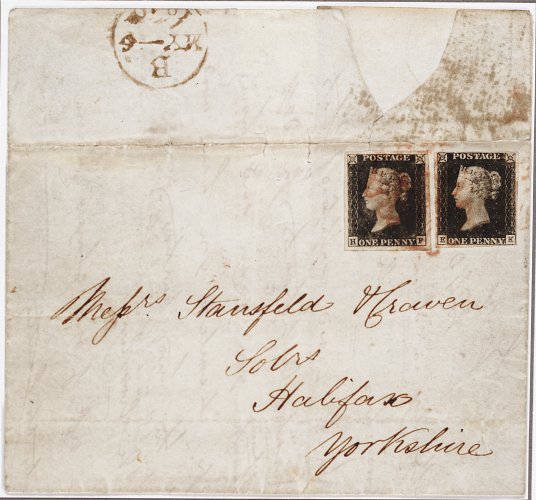 B
MY-6
1840
POSTAGE
R F
ONE PENNY
POSTAGE
R K
ONE PENNY
Messrs Stansfeld & Craven
Solrs
Halifax
Yorkshire